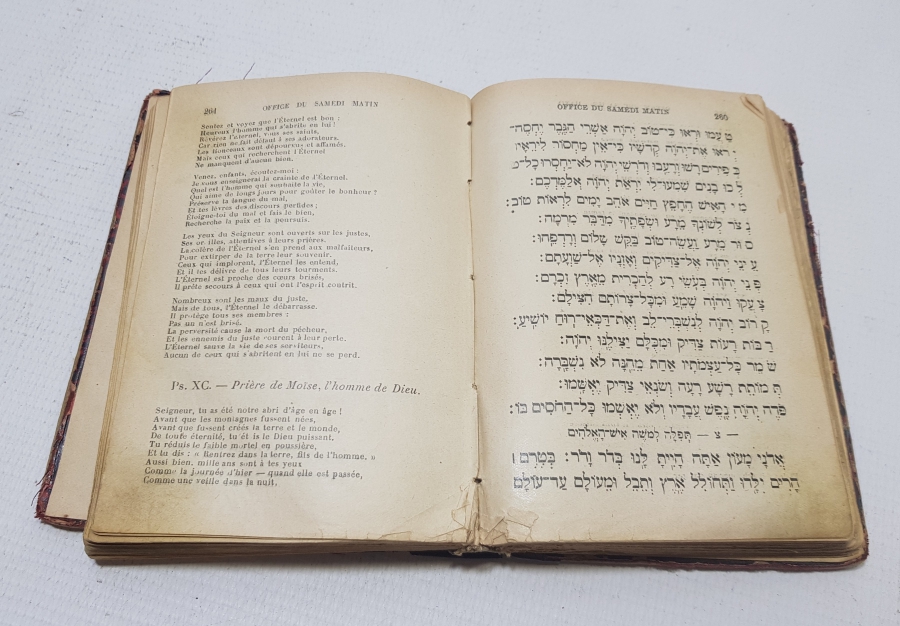 264 OFFICE DU SAMEDI MATIN
Sentez et voyez que l'Éternel est bon :
Heureux l'homme qui s'abrite en lui !
Révérez l'Éternel, vous ses saints,
Car rien ne fait défaut à ses adorateurs.
Les lionceaux sont dépourvus et affamés,
Mais ceux qui recherchent l'Éternel
Ne manquent d'aucun bien.
Venez, enfants, écoutez-moi :
Je vous enseignerai la crainte de l'Éternel.
Quel est l'homme qui souhaite la vie,
Qui aime de longs jours pour goûter le bonheur ?
Préserve ta langue du mal,
Et tes lèvres des discours perfides ;
Éloigne-toi du mal et fais le bien,
Recherche la paix et la poursuis.
Les yeux du Seigneur sont ouverts sur les justes,
Ses or illes, attentives à leurs prières.
La colère de l'Éternel s'en prend aux malfaiteurs,
Pour extirper de la terre leur souvenir.
Ceux qui implorent, l'Éternel les entend,
Et il les délivre de tous leurs tourments.
L'Éternel est proche des cœurs brisés,
Il prête secours à ceux qui ont l'esprit contrit.
Nombreux sont les maux du juste,
Mais de tous, l'Éternel le débarrasse.
Il protège tous ses membres :
Pas un n'est brisé.
La perversité cause la mort du pécheur,
Et les ennemis du juste courent à leur perte.
L'Éternel sauve la vie de ses serviteurs,
Aucun de ceux qui s'abritent en lui ne se perd.
Ps. XC. — Prière de Moïse, l'homme de Dieu.
Seigneur, tu as été notre abri d'âge en âge !
Avant que les montagnes fussent nées,
Avant que fussent créés la terre et le monde,
De toute éternité, tu ét is le Dieu puissant.
Tu réduis le faible mortel en poussière,
Et tu dis : « Rentrez dans la terre, fils de l'homme. »
Aussi bien, mille ans sont à tes yeux
Comme la journée d'hier — quand elle est passée,
Comme une veille dans la nuit.
OFFICE DU SAMEDI MATIN 265
טַ עֲמוּ וּרְאוּ כִּי־טוֹב יְהֹוָה אַשְׁרֵי הַגֶּבֶר יֶחֱסֶה־
יְ ראוּ אֶת־יְהֹוָה קְדֹשָׁיו כִּי־אֵין מַחְסוֹר לִירֵאָיו
כְּ פִירִים רָשׁוּ וְרָעֵבוּ וְדֹרְשֵׁי יְהֹוָה לֹא־יַחְסְרוּ כָל־
לְ כוּ בָנִים שִׁמְעוּ־לִי יִרְאַת יְהֹוָה אֲלַמֶּדְכֶם:
מִ י הָאִישׁ הֶחָפֵץ חַיִּים אֹהֵב יָמִים לִרְאוֹת טוֹב:
נְ צֹר לְשׁוֹנְךָ מֵרָע וּשְׂפָתֶיךָ מִדַּבֵּר מִרְמָה:
ס וּר מֵרָע וַעֲשֵׂה־טוֹב בַּקֵּשׁ שָׁלוֹם וְרָדְפֵהוּ:
עֵ ינֵי יְהֹוָה אֶל־צַדִּיקִים וְאָזְנָיו אֶל־שַׁוְעָתָם:
פְּ נֵי יְהֹוָה בְּעֹשֵׂי רָע לְהַכְרִית מֵאֶרֶץ זִכְרָם:
צָ עֲקוּ וַיהֹוָה שָׁמֵעַ וּמִכָּל־צָרוֹתָם הִצִּילָם:
קָ רוֹב יְהֹוָה לְנִשְׁבְּרֵי־לֵב וְאֶת־דַּכְּאֵי־רוּחַ יוֹשִׁיעַ:
רַ בּוֹת רָעוֹת צַדִּיק וּמִכֻּלָּם יַצִּילֶנּוּ יְהֹוָה:
שֹׁ מֵר כָּל־עַצְמֹתָיו אַחַת מֵהֵנָּה לֹא נִשְׁבָּרָה:
תְּ מוֹתֵת רָשָׁע רָעָה וְשֹׂנְאֵי צַדִּיק יֶאְשָׁמוּ:
פֹּדֶה יְהֹוָה נֶפֶשׁ עֲבָדָיו וְלֹא יֶאְשְׁמוּ כָּל־הַחֹסִים בּוֹ:
— צ — תְּפִלָּה לְמֹשֶׁה אִישׁ־הָאֱלֹהִים
אֲדֹנָי מָעוֹן אַתָּה הָיִיתָ לָּנוּ בְּדֹר וָדֹר: בְּטֶרֶם
הָרִים יֻלָּדוּ וַתְּחוֹלֵל אֶרֶץ וְתֵבֵל וּמֵעוֹלָם עַד־עוֹלָם